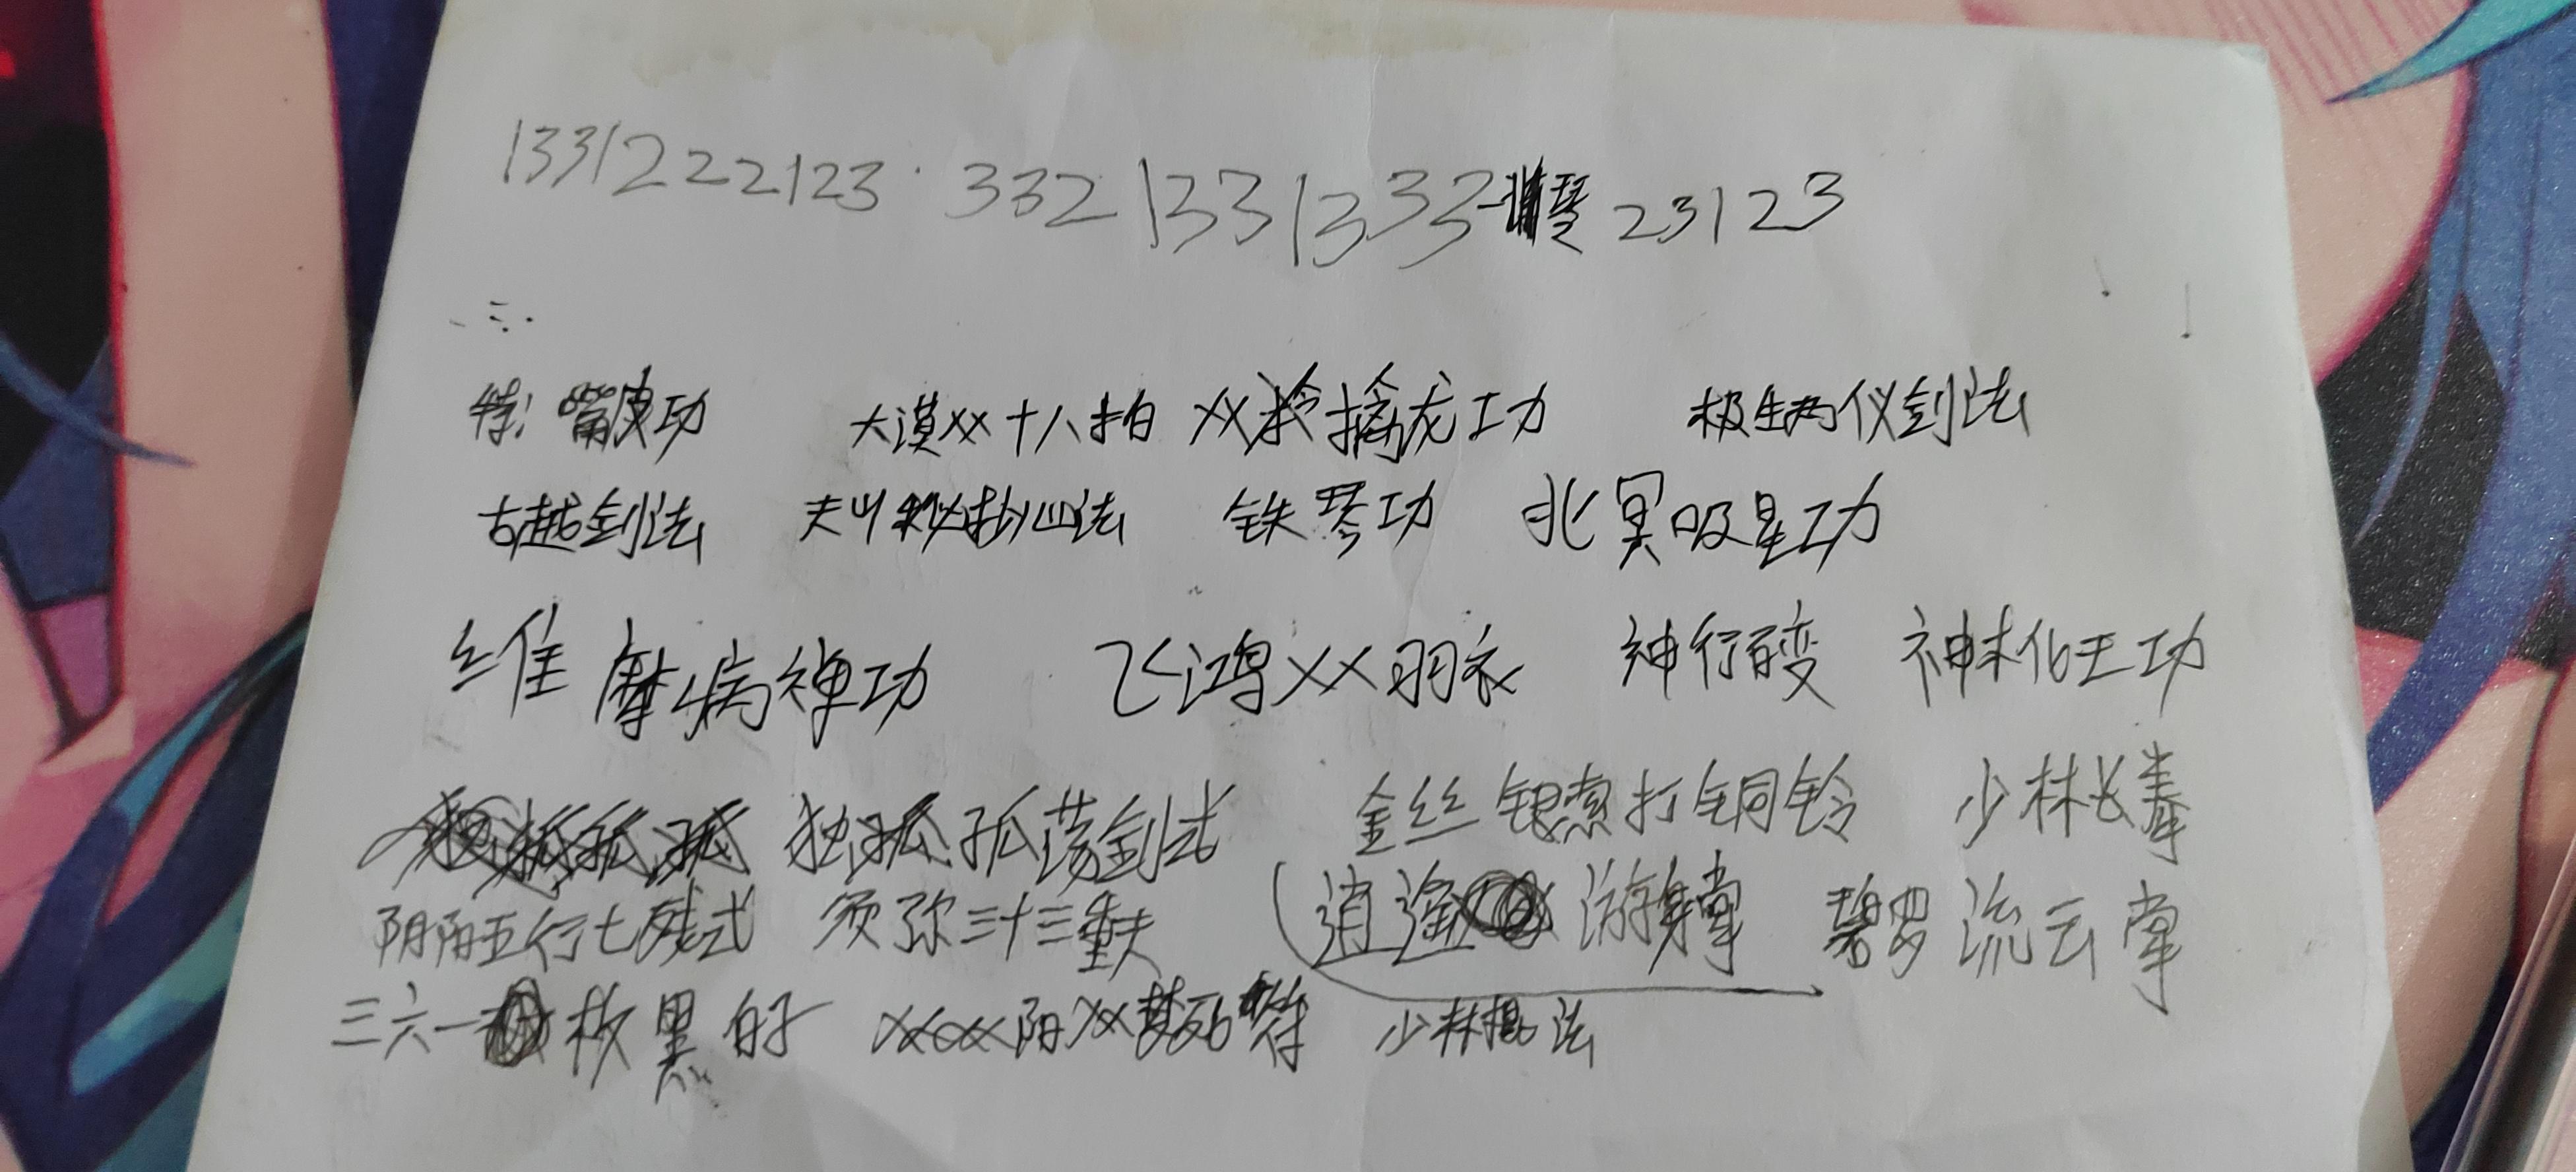 1331222123 · 332 1331333 琴 23123
特: 嘴皮功 大漠xx十八拍 xx擒龙功 极生两仪剑法
古越剑法 天山秘抄心法 铁琴功 北冥吸星功
维摩病禅功 飞鸿xx羽衣 神行百变 神木化王功
独孤孤荡剑式 金丝银索打铜铃 少林长拳
阴阳五行七威式 须弥三十三重天 逍遥游身掌 碧罗流云掌
三六一板黑的子 xxxx阳xx梦死符 少林棍法